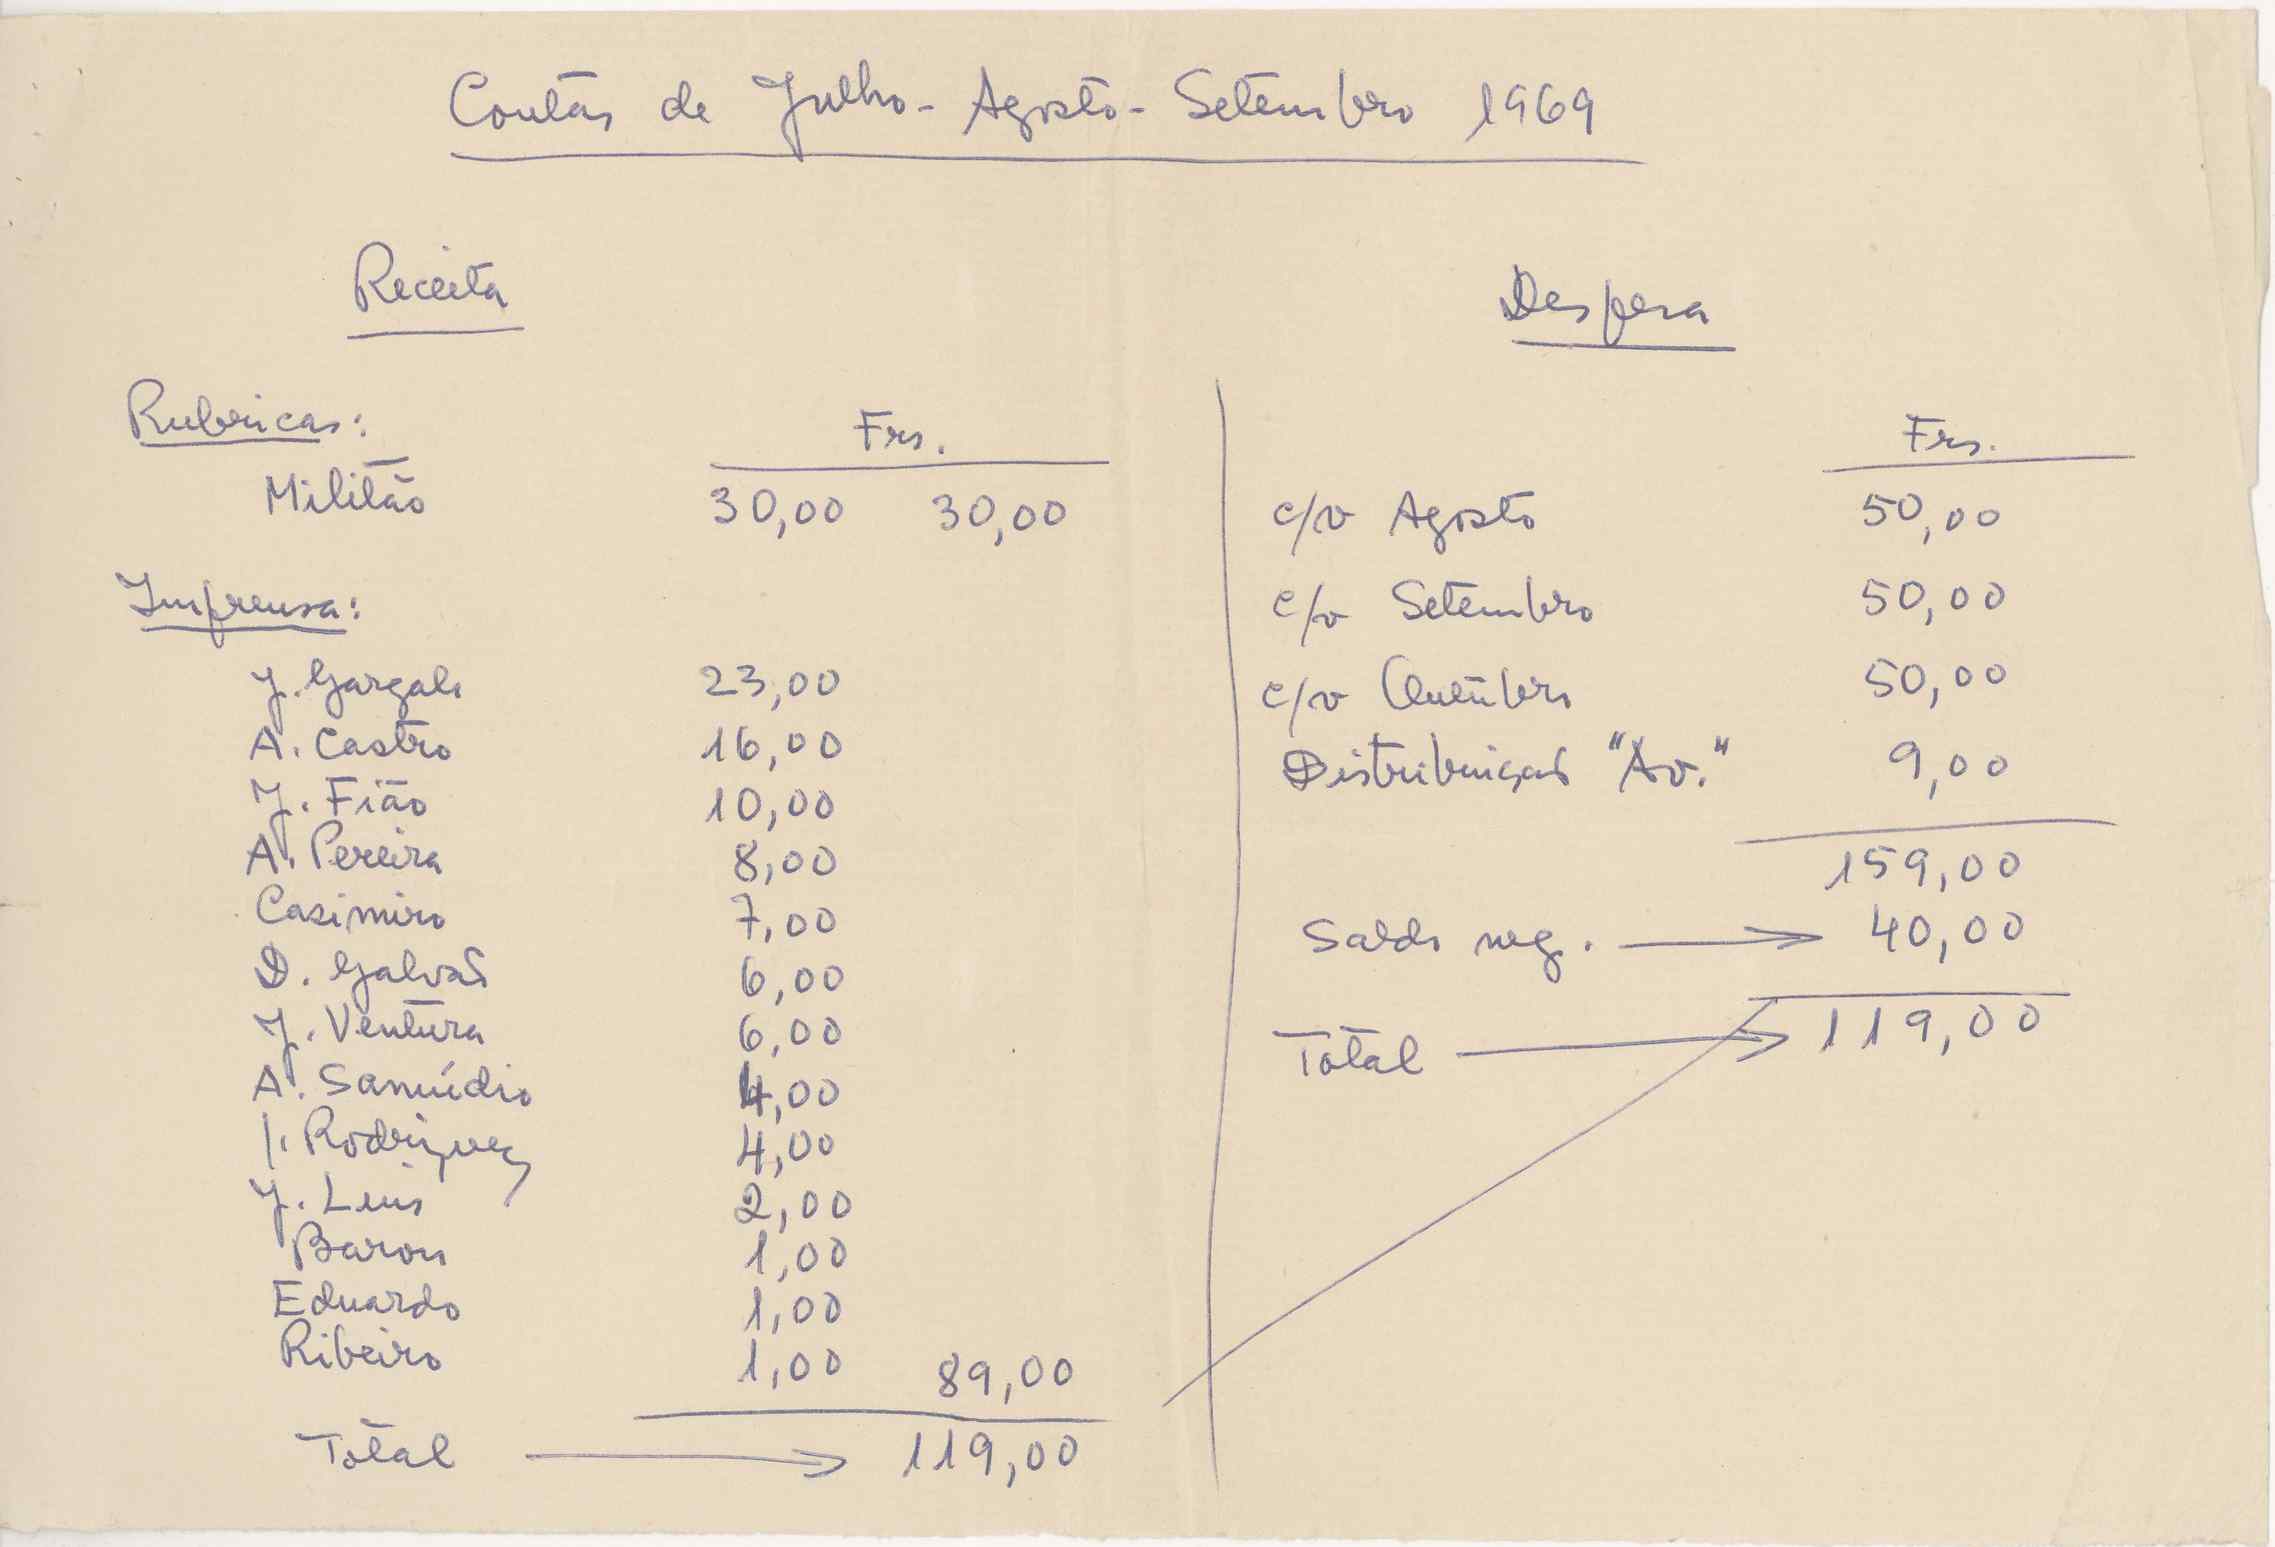 Contas de Julho - Agosto - Setembro 1969
Receita
Rubricas:
Frs.
Militão 30,00 30,00
Imprensa:
J. Gargalo 23,00
A. Castro 16,00
J. Fião 10,00
A. Pereira 8,00
Casimiro 7,00
D. Galvão 6,00
J. Ventura 6,00
A. Samúdio 4,00
J. Rodrigues 4,00
J. Luis 2,00
Baron 1,00
Eduardo 1,00
Ribeiro 1,00 89,00
Total 119,00
Despesa
Frs.
c/v Agosto 50,00
c/v Setembro 50,00
c/v Outubro 50,00
Distribuição "Av." 9,00
159,00
Saldo neg. 40,00
Total 119,00